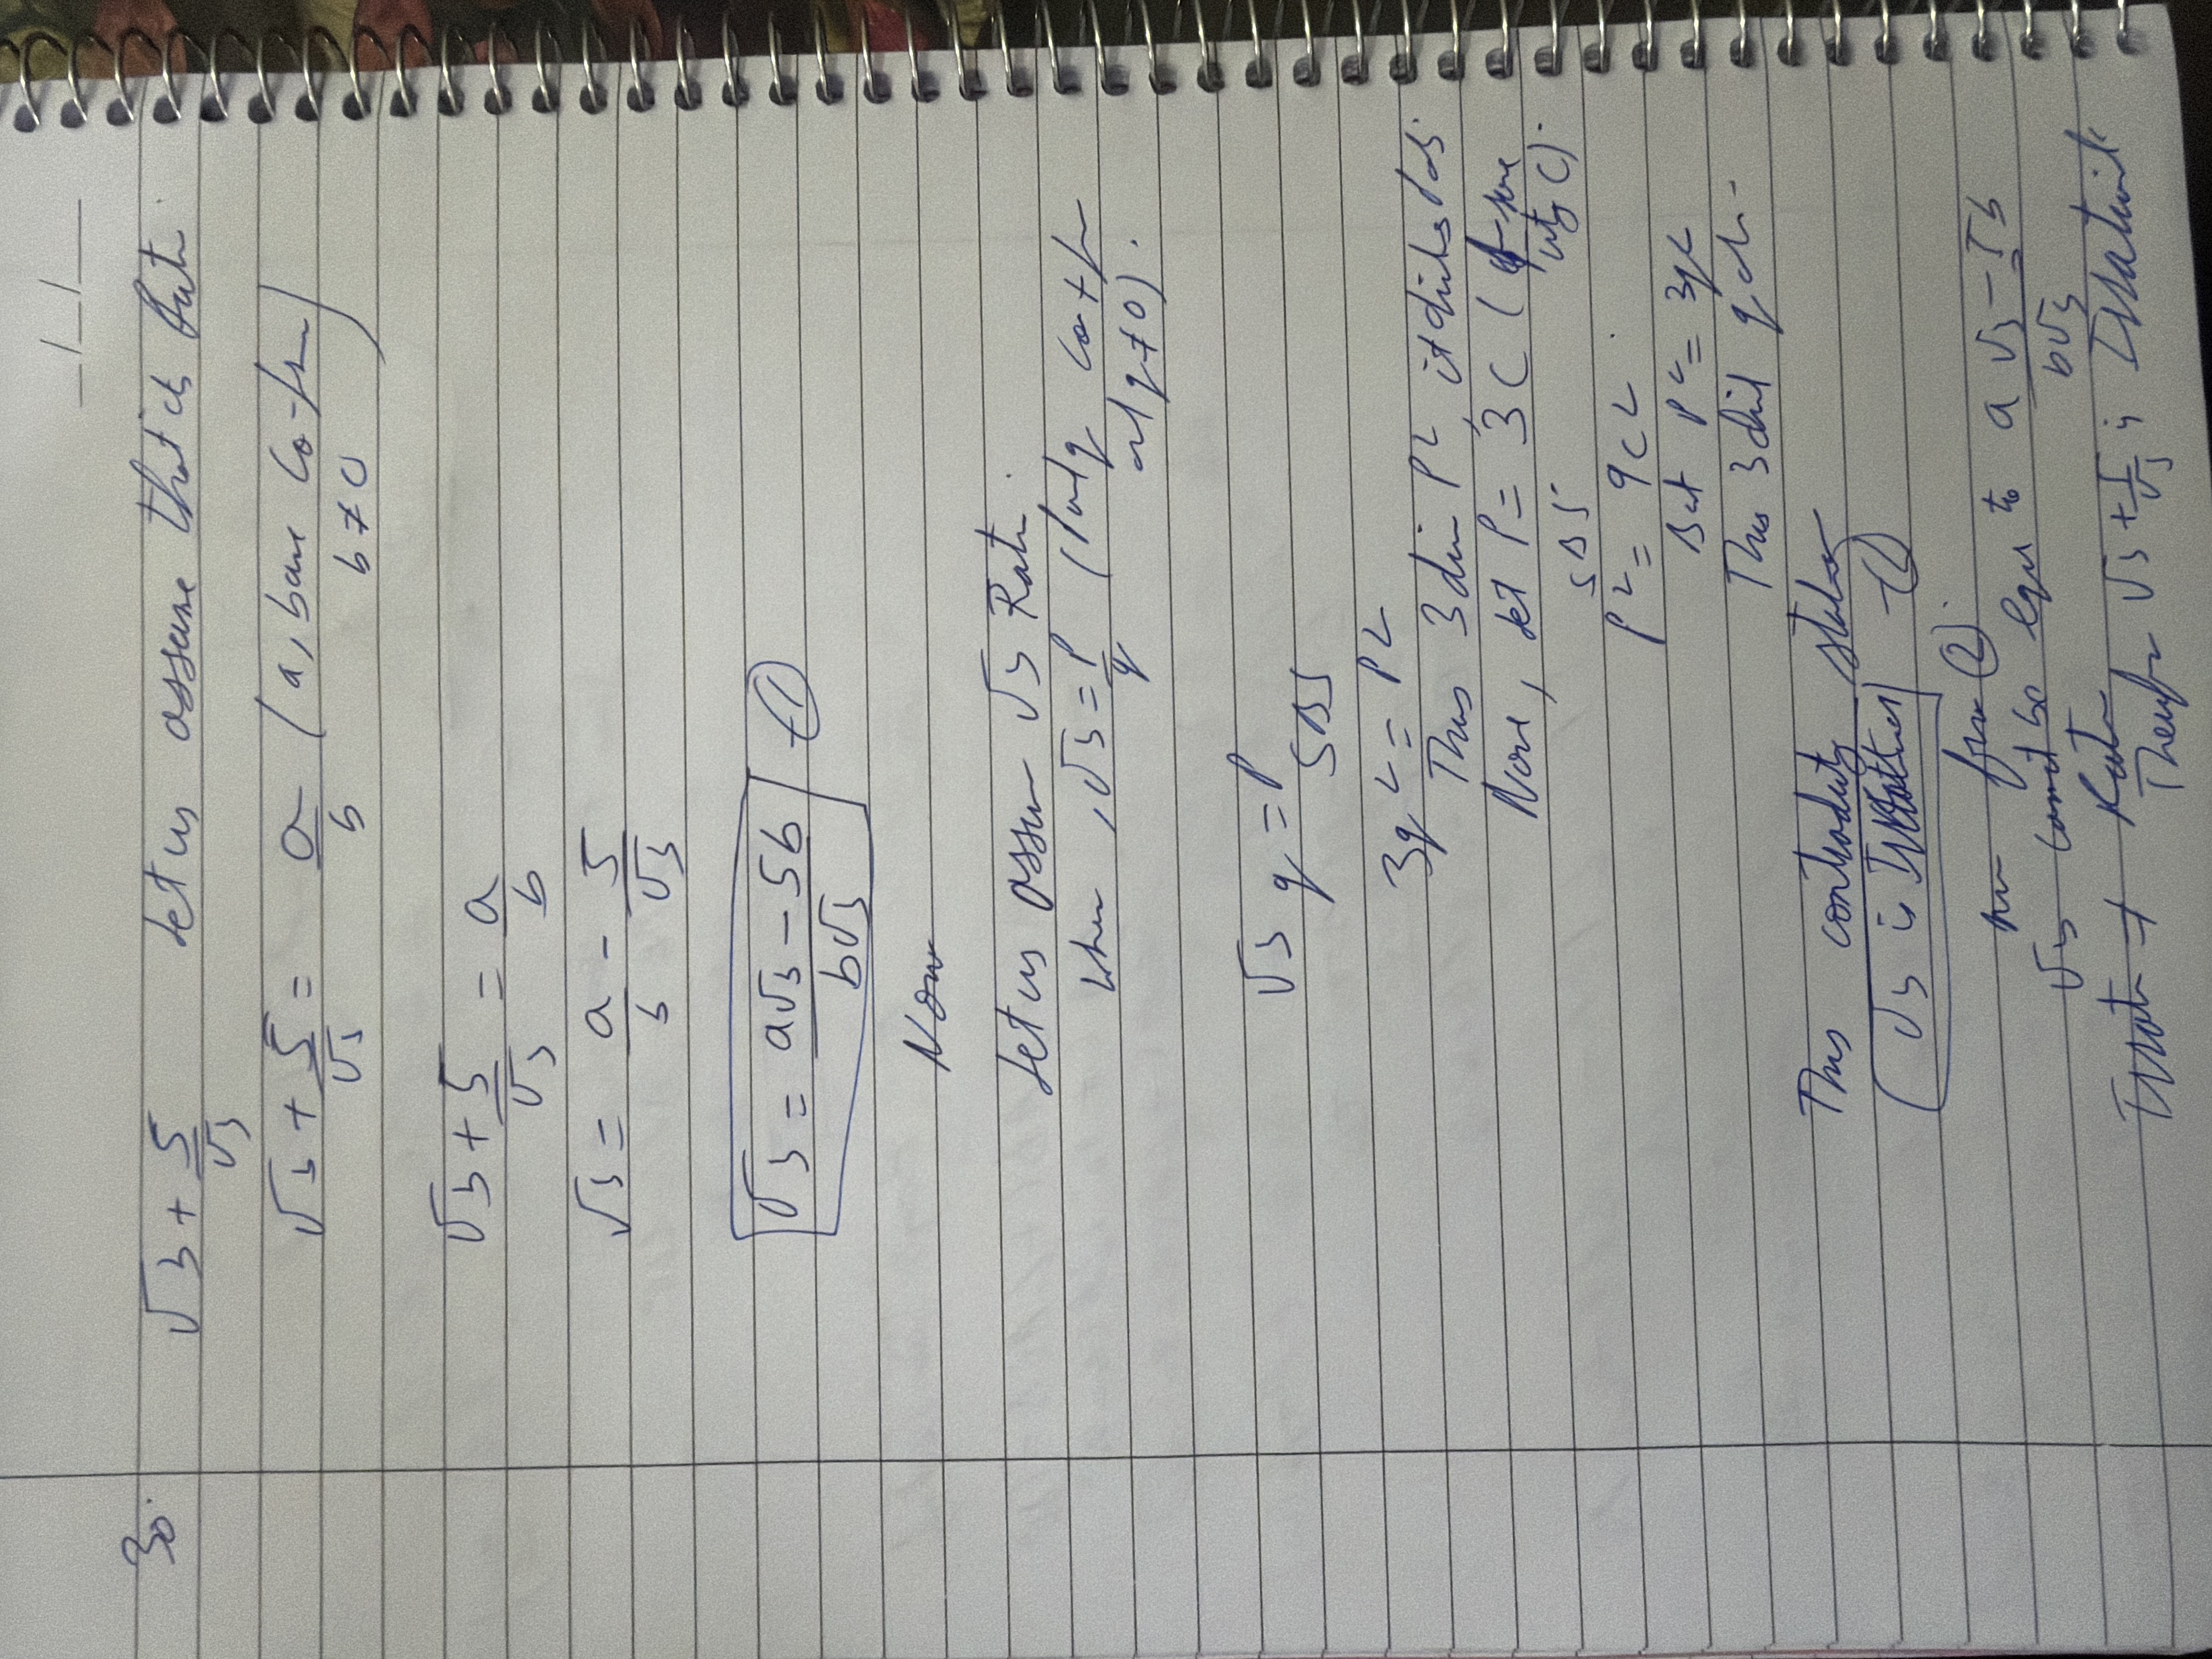 __/__/__
30. √3 + 5/√3 Let us assume that it is Ratn.
√3 + 5/√3 = a/b (a, b are co-prm b ≠ 0)
√3 + 5/√3 = a/b
√3 = a/b - 5/√3
√3 = a√3 - 5b / b√3 -(1)
Now
Let us assum √3 Ratn.
when, √3 = p/q (p and q co-pr and q ≠ 0).
√3 q = p
SBS
3q² = p²
Thus 3 divi p², it divides p also.
Now, let p = 3c (for some intg c).
SBS
p² = 9c²
But p² = 3q²
Thus 3 divid q
This contradicts
√3 is Irrational -(2)
from (2)
√3 cannot be equal to a√3 - 5b / b√3
Irratn ≠ Ratn
Therefr √3 + 5/√3 is Irrational.